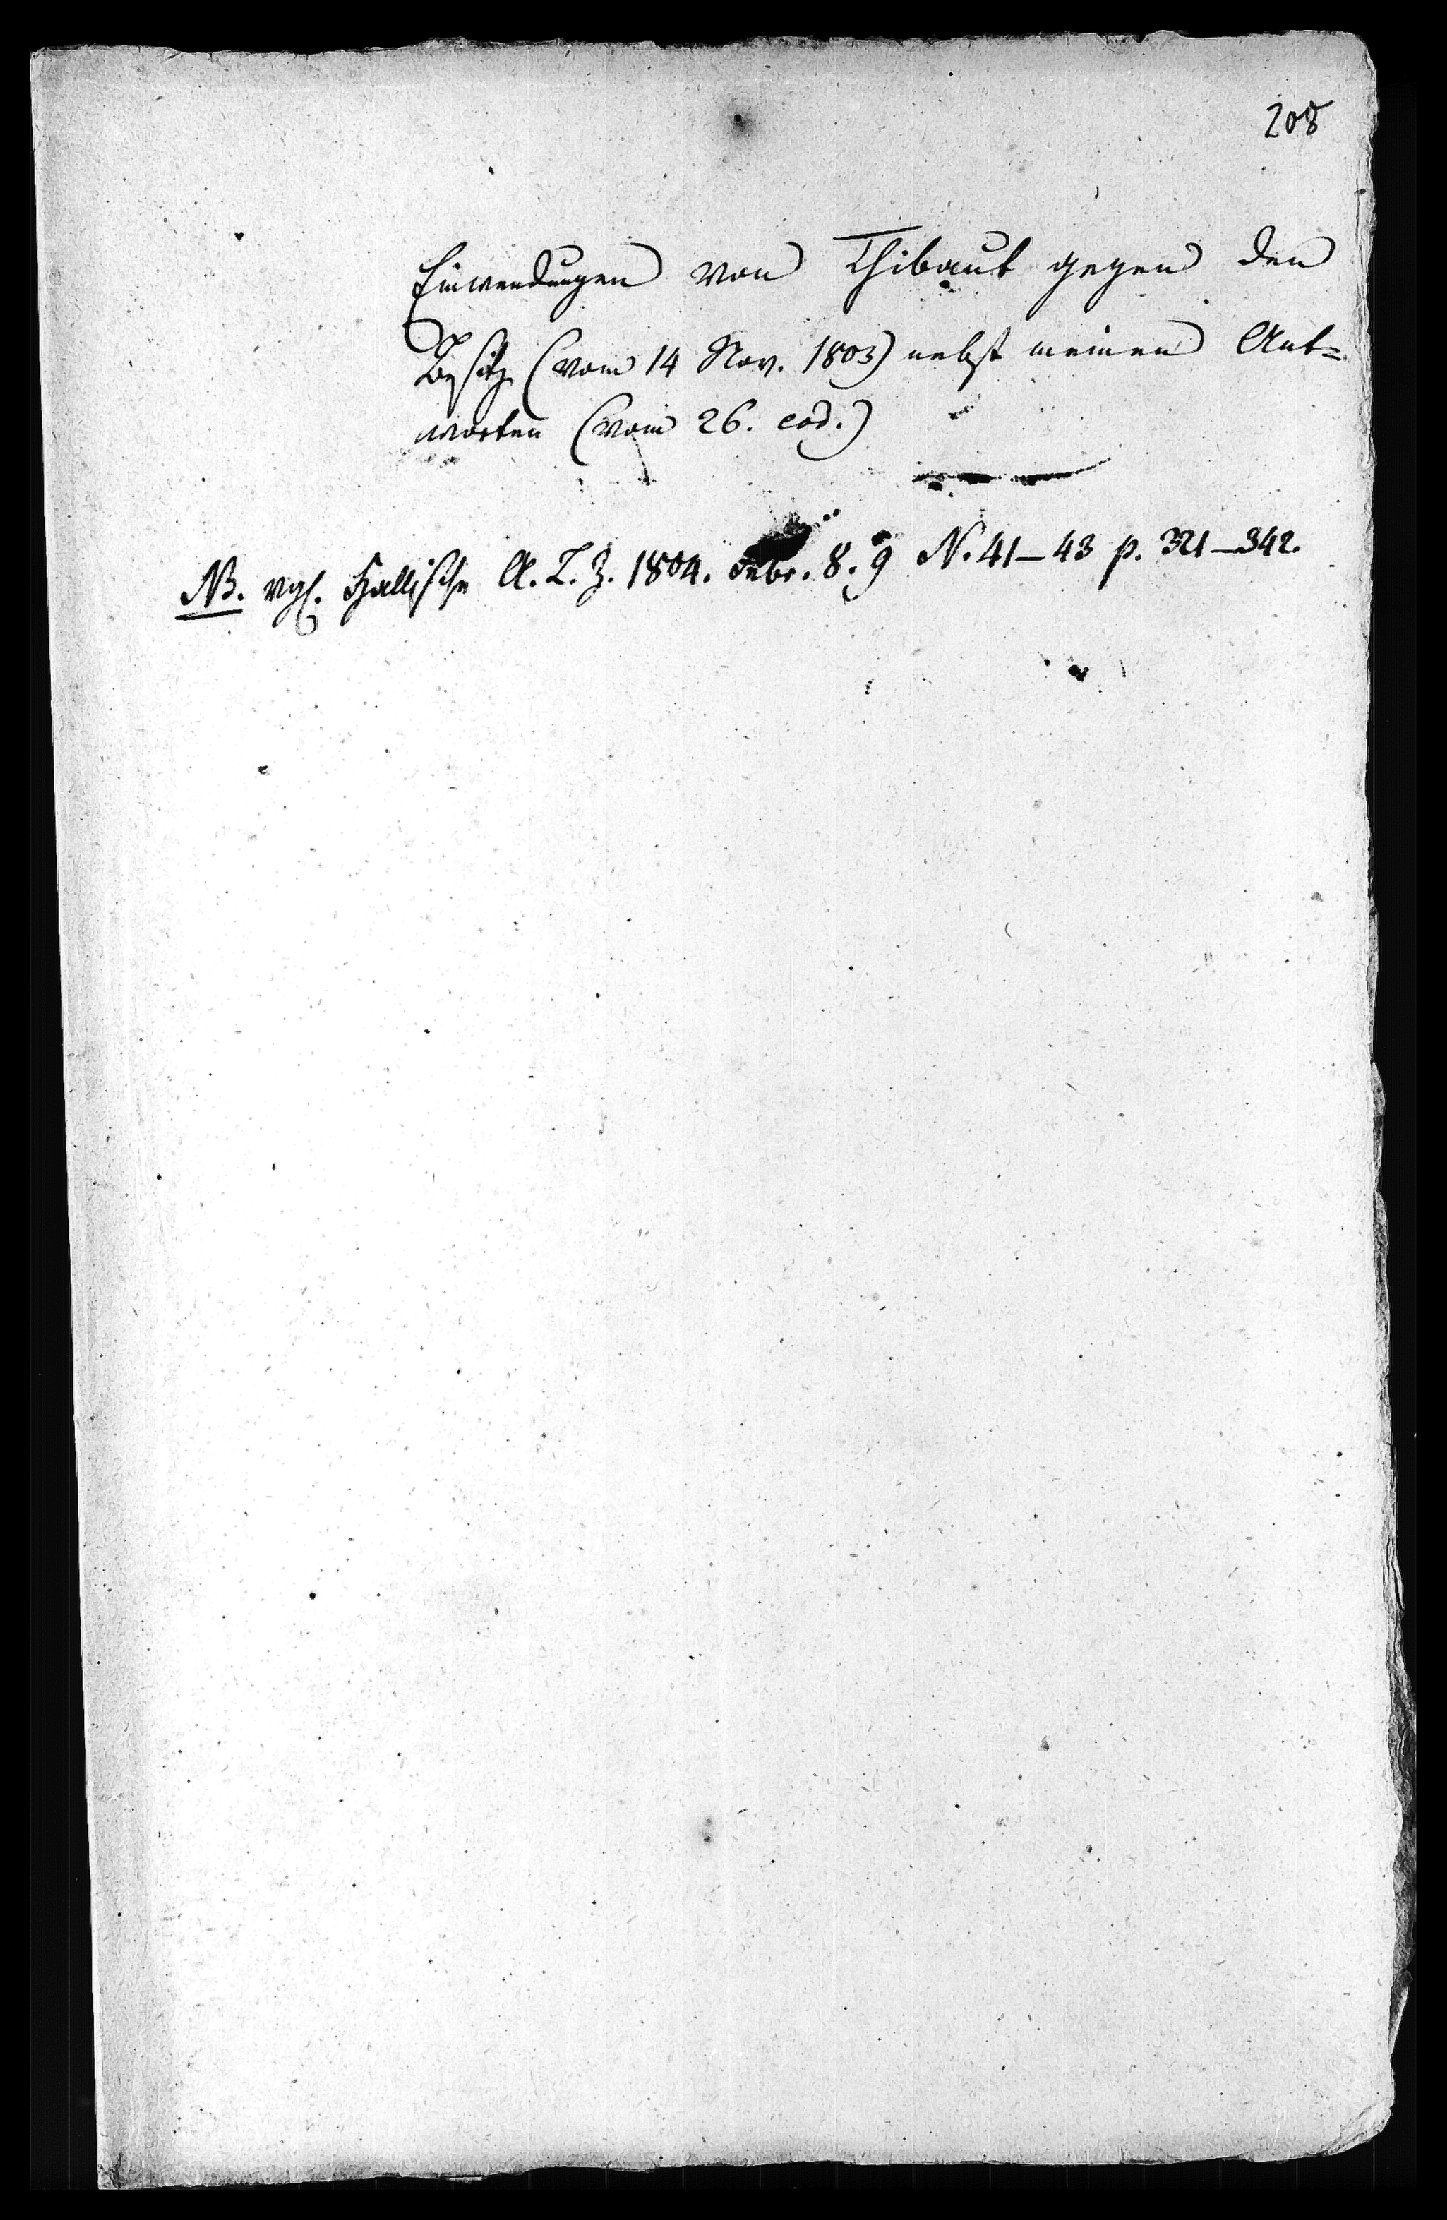 208
Einwendungen von Thibaut gegen den
Besitz (vom 14 Nov. 1803) nebst meinen Ant=
worten (vom 26. eod.)
NB. vgl. Hallische A. L. Z. 1804. Febr. 8. 9 N. 41-43 p. 321-342.